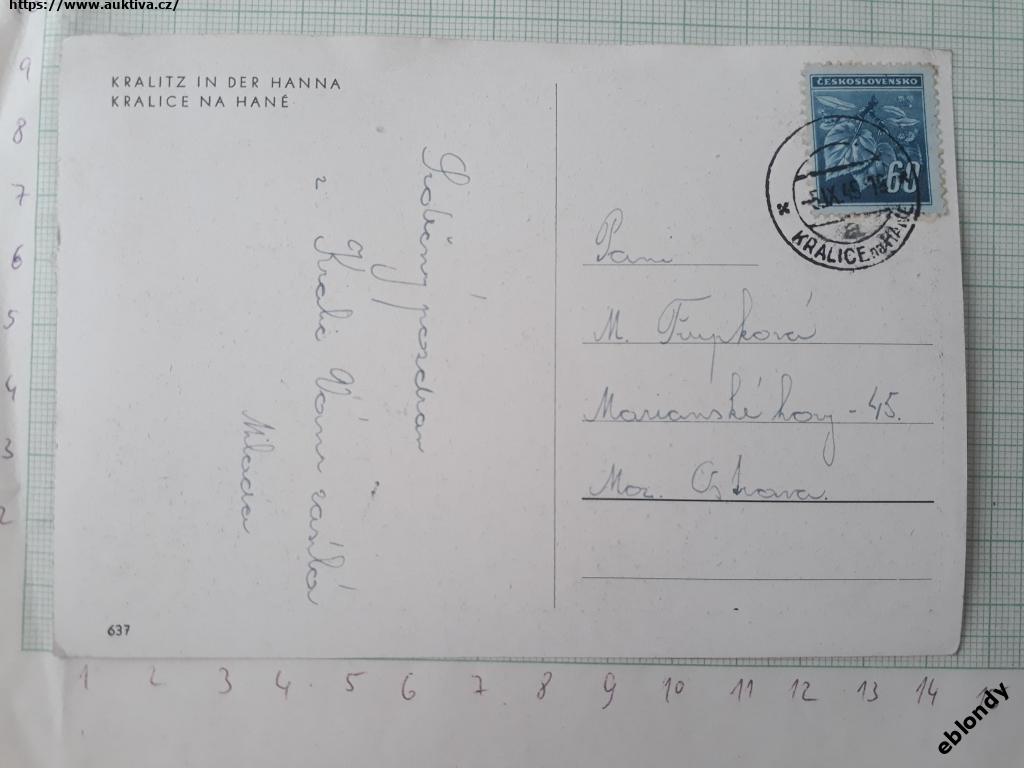 https://www.auktiva.cz/
KRALITZ IN DER HANNA
KRALICE NA HANÉ
ČESKOSLOVENSKO
60
KRALICE na HANÉ
a
Srdečný pozdrav
z Kralic Vám zasílá
Milada
Paní
M. Ťupková
Marianské hory - 45.
Mor. Ostrava.
637
9
8
7
6
5
4
3
2
1 2 3 4 5 6 7 8 9 10 11 12 13 14
eblondy